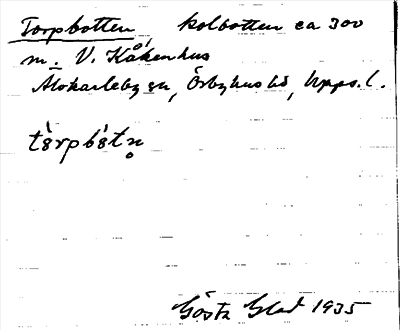 Torpbotten, kolbotten ca 300
m. V. Kåkenhus
Älvkarleby sn, Örbyhus hd, Upps. l.
Gösta Glad 1935